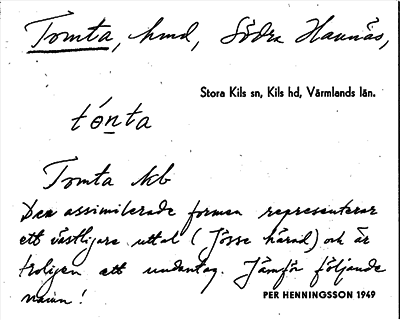 Tomta, hmd, Södra Hannäs,
Stora Kils sn, Kils hd, Värmlands län.
tónta
Tomta Kb
Den assimilerade formen representerar
ett västligare uttal (Jösse härad) och är
troligen ett undantag. Jämför följande
namn!
PER HENNINGSSON 1949